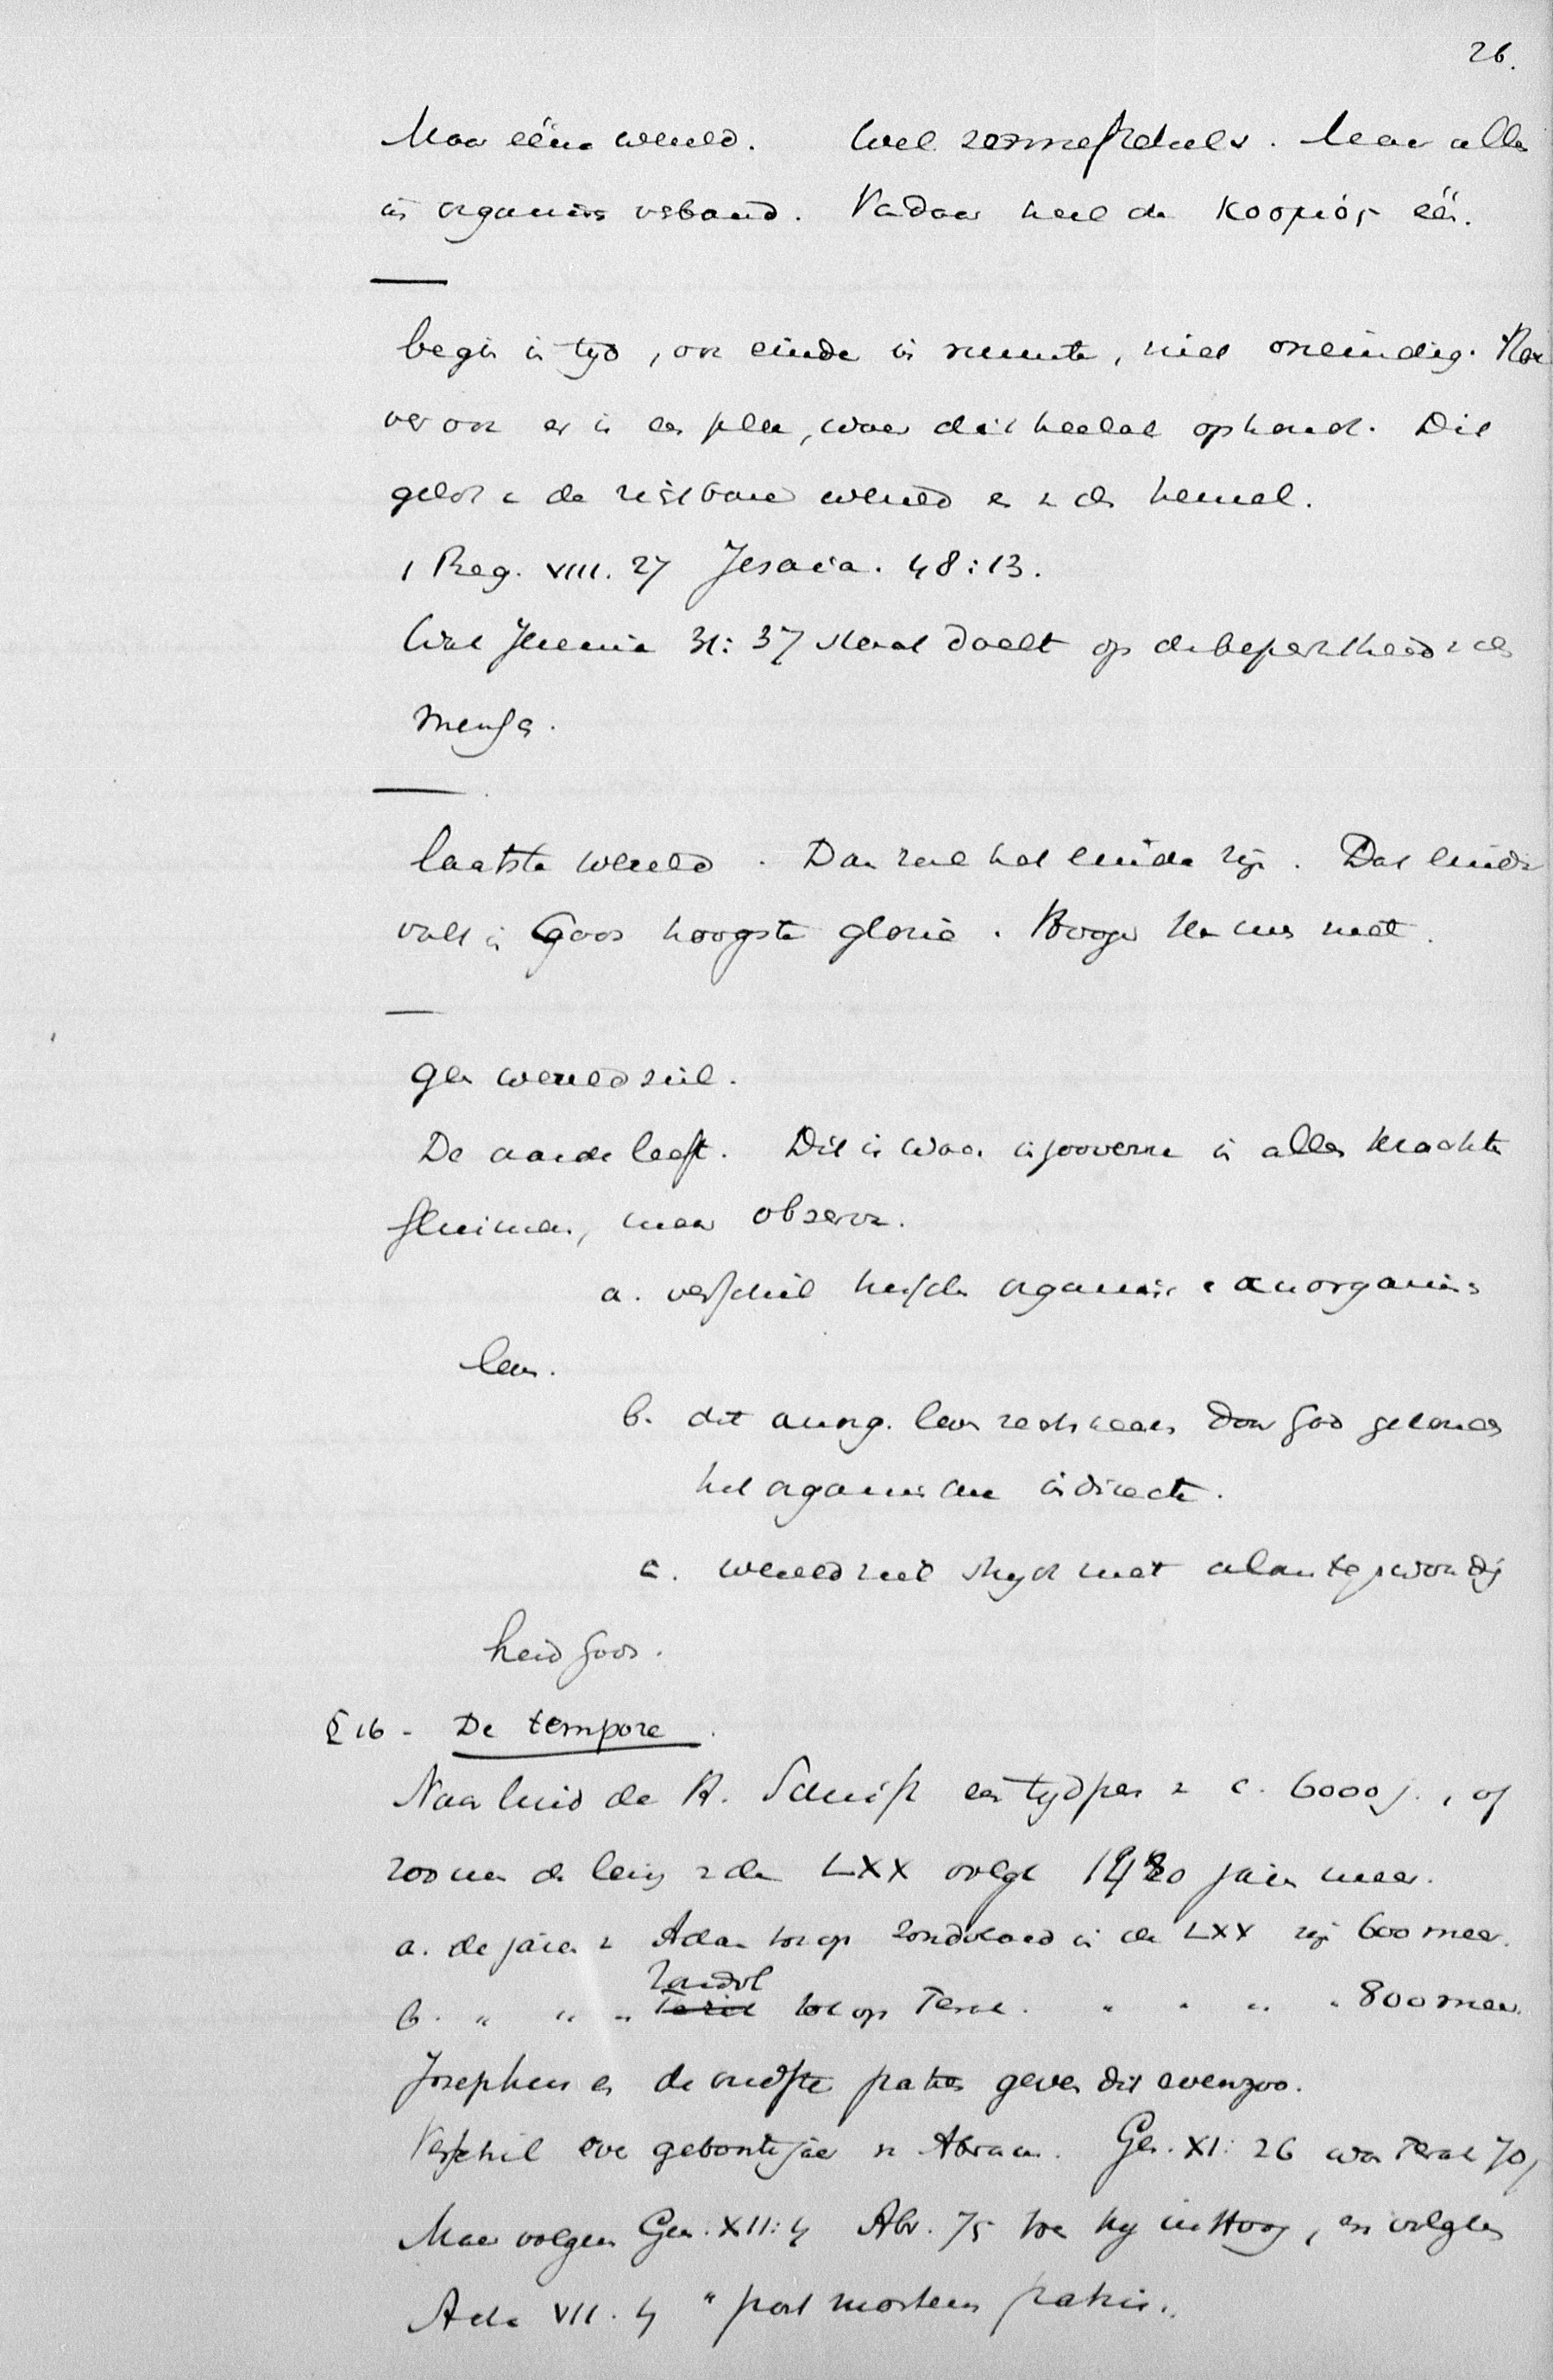 26.
Maar ééne wereld. Wel zonnestelsels. Maar alles
in organisch verband. Vandaar heel de κοσμός één.
begin in tijd, ook einde in ruimte, niet oneindig. Hoe
ver ook er is een plek, waar dit heelal ophoudt. Dit
geldt de zichtbare wereld en den hemel.
1 Reg. VIII. 27 Jesaia. 48:13.
Wat Jeremia 31:37 staat doelt op de beperktheid v. den
mensch.
laatste wereld. Dan zal het einde zijn. Dat einde
valt in Gods hoogste glorie. Hooger kan het niet.
Geen wereldziel.
De aarde leeft. Dit is waar in zooverre in alles krachten
sluimeren, maar observ.
a. verschil tusschen organisch & anorganisch
leven.
b. dit anorg. leven rechtstreeks door God
het organische indirecte.
c. wereldziel strijdt met alomtegenwoordig
heid Gods.
§ 16 - De tempore.
Naar luid de H. Schrift een tijdperk v. c. 6000 j., of
zoo men de lezing v. de LXX volgt jaren meer.
a. de jaren v. Adam tot op zondvloed in de LXX zijn 600 meer.
b. " " " Zondvl tot op Terah. " " " " 800 meer.
Josephus en de oudste patres geven dit evenzoo.
Verschil over geboortejaar v. Abram. Gen. XI: 26 was Terah 70,
Maar volgens Gen. XII:4 Abr. 75 toen hij uittoog, en volgens
Acta VII. 4 "post mortem patris".